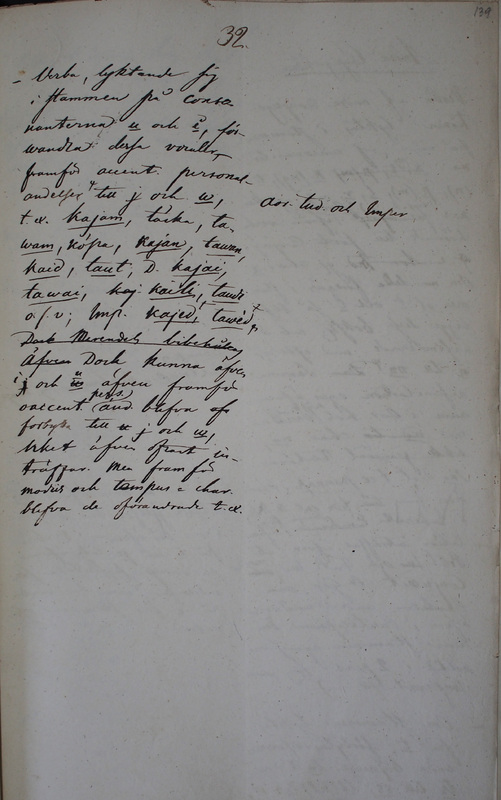 139
32.
– Verba, lyktande sig
i stammen på conso-
nanterna u och i, för-
wandla dessa vocaller
framför accent. personal-
ändelser till j och w,
t.ex. kajam, täcka, ta-
wam, köpa, kajan, tawan,
kaid, taut, D. kajai,
tawai, kaili, taudi
o.s.v; Imp. kajed, tawed,
aor. ind. och Imper
Dock Merendels bibehålles
Äfven Dock kunna äfven
i och u äfven framför
oaccent. pers. änd. blifva
till j och w,
hvilket äfven oftast in-
träffar. Men framför
modus och tempus = char.
blifva de oförändrade t.ex.